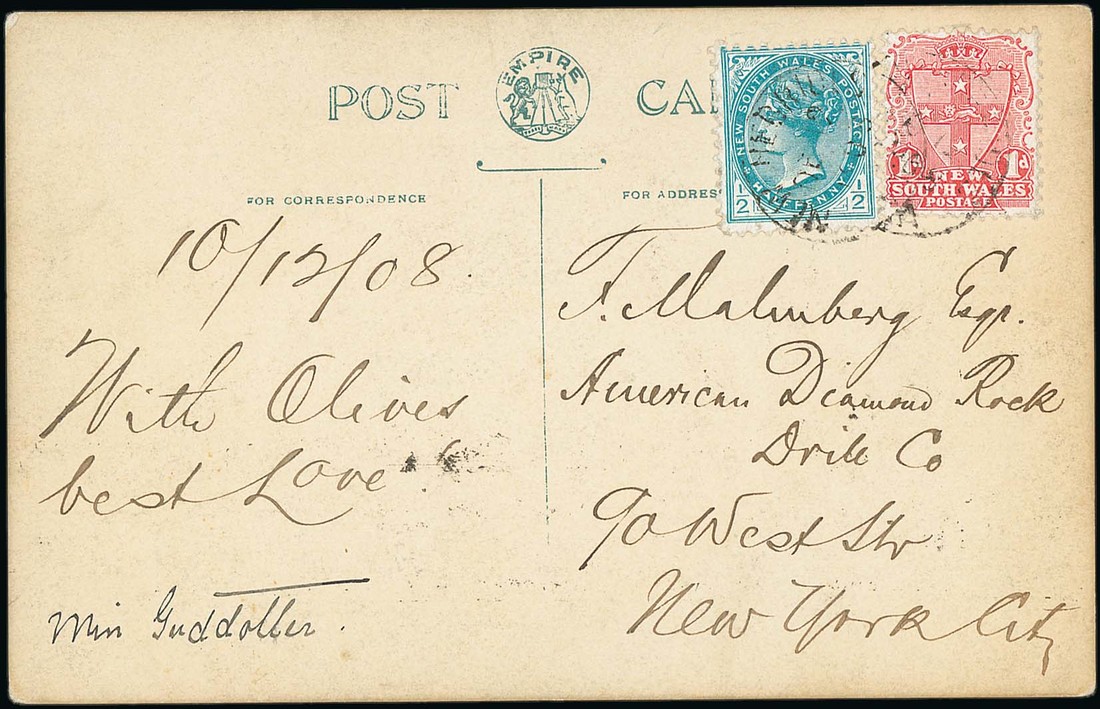 POST
EMPIRE
NEW SOUTH WALES POSTAGE
HALFPENNY
1/2 1/2
1d 1d
NEW
SOUTH WALES
POSTAGE
FOR CORRESPONDENCE
FOR ADDRESS
10/12/08.
With Olives
best Love
Min Guddotter.
F. Malmberg Esqr.
American Diamond Rock
Drill Co
90 West Str
New York City